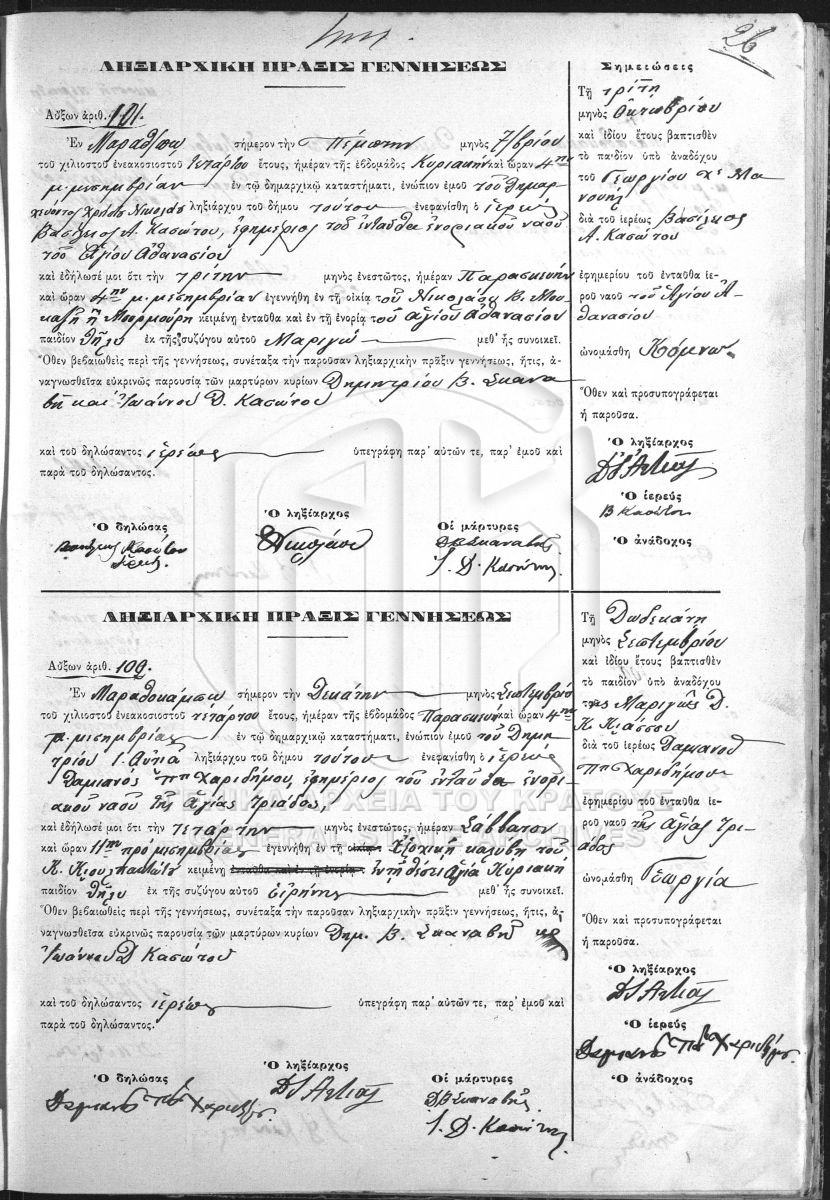 26
ΛΗΞΙΑΡΧΙΚΗ ΠΡΑΞΙΣ ΓΕΝΝΗΣΕΩΣ
Αὔξων ἀριθ. 101.
Ἐν Μαραθόκαμπω σήμερον τὴν Πέμπτην μηνὸς 7/βρίου
τοῦ χιλιοστοῦ ἐνεακοσιοστοῦ τετάρτου ἔτους, ἡμέραν τῆς ἑβδομάδος Κυριακὴν καὶ ὥραν 4ην
μ. μεσημβρίαν ἐν τῷ δημαρχικῷ καταστήματι, ἐνώπιον ἐμοῦ τοῦ δημαρ
χεύοντος Χρήστου Νικολάου ληξιάρχου τοῦ δήμου τούτου ἐνεφανίσθη ὁ ἱερεὺς
Βασίλειος Α. Κασώτου, ἐφημέριος τοῦ ἐνταῦθα ἐνοριακοῦ ναοῦ
τοῦ Ἁγίου Ἀθανασίου
καὶ ἐδήλωσέ μοι ὅτι τὴν τρίτην μηνὸς ἐνεστῶτος, ἡμέραν Παρασκευὴν
καὶ ὥραν 4ην μ. μεσημβρίαν ἐγεννήθη ἐν τῇ οἰκίᾳ τοῦ Νικολάου Β.
ἢ Μουρμούρη κειμένῃ ἐνταῦθα καὶ ἐν τῇ ἐνορίᾳ τοῦ ἁγίου Ἀθανασίου
παιδίον θῆλυ ἐκ τῆς συζύγου αὐτοῦ Μαριγῶ μεθ᾽ ἧς συνοικεῖ.
Ὅθεν βεβαιωθεὶς περὶ τῆς γεννήσεως, συνέταξα τὴν παροῦσαν ληξιαρχικὴν πρᾶξιν γεννήσεως, ἥτις, ἀ-
ναγνωσθεῖσα εὐκρινῶς παρουσίᾳ τῶν μαρτύρων κυρίων Δημητρίου Β. Σκανα
βῆ καὶ Ἰωάννου Δ. Κασώτου
καὶ τοῦ δηλώσαντος ἱερέως ὑπεγράφη παρ᾽ αὐτῶν τε, παρ᾽ ἐμοῦ καὶ
παρὰ τοῦ δηλώσαντος.
Ὁ δηλώσας
Ὁ ληξίαρχος
Οἱ μάρτυρες
Βασίλειος Κασώτου
ἱερεὺς
Χ Νικολάου
Δ Β Σκαναβῆς
Ι. Δ. Κασώτης.
Σημειώσεις
Τῇ τρίτῃ
μηνὸς Ὀκτωβρίου
καὶ ἰδίου ἔτους βαπτισθὲν
τὸ παιδίον ὑπὸ ἀναδόχου
τοῦ Γεωργίου Χʺ Μα
νουὴλ
διὰ τοῦ ἱερέως Βασιλείου
Α. Κασώτου
ἐφημερίου τοῦ ἐνταῦθα ἱε-
ροῦ ναοῦ τοῦ Ἁγίου Ἀ
θανασίου
ὠνομάσθη Κόμνω.
Ὅθεν καὶ προσυπογράφεται
ἡ παροῦσα.
Ὁ ληξίαρχος
Ὁ ἱερεύς
Β Κασώτου
Ὁ ἀνάδοχος
ΛΗΞΙΑΡΧΙΚΗ ΠΡΑΞΙΣ ΓΕΝΝΗΣΕΩΣ
Αὔξων ἀριθ. 102.
Ἐν Μαραθοκάμπω σήμερον τὴν Δεκάτην μηνὸς Σεπτεμβρίου
τοῦ χιλιοστοῦ ἐνεακοσιοστοῦ τετάρτου ἔτους, ἡμέραν τῆς ἑβδομάδος Παρασκευὴν καὶ ὥραν 4ην
μ. μεσημβρίας ἐν τῷ δημαρχικῷ καταστήματι, ἐνώπιον ἐμοῦ τοῦ Δημη
τρίου Ι. ληξιάρχου τοῦ δήμου τούτου ἐνεφανίσθη ὁ ἱερεὺς
Δαμιανὸς πʺπ Χαριδήμου, ἐφημέριος τοῦ ἐνταῦθα ἐνορι
ακοῦ ναοῦ τῆς ἁγίας Τριάδος,
καὶ ἐδήλωσέ μοι ὅτι τὴν τετάρτην μηνὸς ἐνεστῶτος, ἡμέραν Σάββατον
καὶ ὥραν 11ην πρὸ μεσημβρίας ἐγεννήθη ἐν τῇ οἰκίᾳ ἐξοχικῇ καλύβῃ τοῦ
Κ. κειμένῃ ἐνταῦθα καὶ ἐν τῇ ἐνορίᾳ ἐν τῇ θέσει Ἁγία Κυριακὴ
παιδίον θῆλυ ἐκ τῆς συζύγου αὐτοῦ Εἰρήνης μεθ᾽ ἧς συνοικεῖ.
Ὅθεν βεβαιωθεὶς περὶ τῆς γεννήσεως, συνέταξα τὴν παροῦσαν ληξιαρχικὴν πρᾶξιν γεννήσεως, ἥτις, ἀ-
ναγνωσθεῖσα εὐκρινῶς παρουσίᾳ τῶν μαρτύρων κυρίων Δημ. Β. Σκαναβῆ κ
Ἰωάννου Δ Κασώτου
καὶ τοῦ δηλώσαντος ἱερέως ὑπεγράφη παρ᾽ αὐτῶν τε, παρ᾽ ἐμοῦ καὶ
παρὰ τοῦ δηλώσαντος.
Ὁ δηλώσας
Ὁ ληξίαρχος
Οἱ μάρτυρες
Δαμιανὸς
Δ Β Σκαναβῆς
Ι. Δ. Κασώτης
Τῇ Δωδεκάτῃ
μηνὸς Σεπτεμβρίου
καὶ ἰδίου ἔτους βαπτισθὲν
τὸ παιδίον ὑπὸ ἀναδόχου
τῆς Μαριγῶς Δ.
Κ. Κιάσσου
διὰ τοῦ ἱερέως Δαμιανοῦ
πʺπ Χαριδήμου
ἐφημερίου τοῦ ἐνταῦθα ἱε-
ροῦ ναοῦ τῆς ἁγίας Τρι-
άδος
ὠνομάσθη Γεωργία
Ὅθεν καὶ προσυπογράφεται
ἡ παροῦσα.
Ὁ ληξίαρχος
Ὁ ἱερεύς
Δαμιανὸς
Ὁ ἀνάδοχος
ΓΕΝΙΚΑ ΑΡΧΕΙΑ ΤΟΥ ΚΡΑΤΟΥΣ
GENERAL STATE ARCHIVES